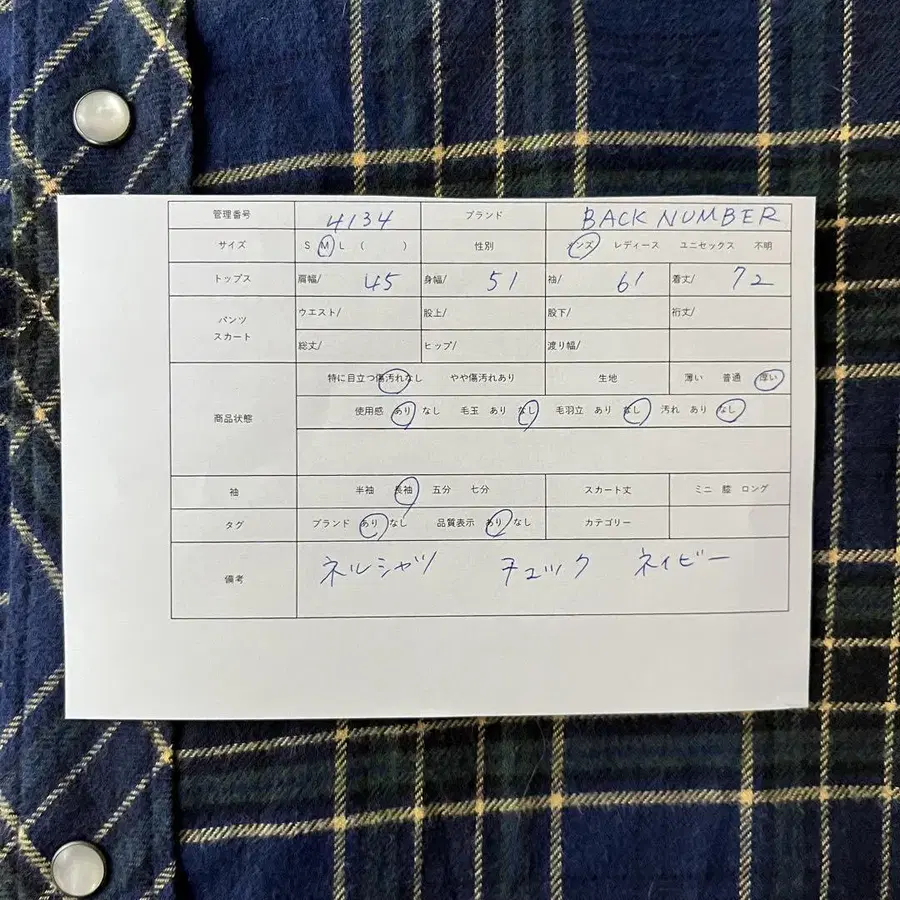 管理番号 4134 ブランド BACK NUMBER
サイズ S M L ( ) 性別 メンズ レディース ユニセックス 不明
トップス 肩幅/ 45 身幅/ 51 袖/ 61 着丈/ 72
パンツ スカート ウエスト/ 股上/ 股下/ 裄丈/
総丈/ ヒップ/ 渡り幅/
特に目立つ傷汚れなし やや傷汚れあり 生地 薄い 普通 厚い
商品状態 使用感 あり なし 毛玉 あり なし 毛羽立 あり なし 汚れ あり なし
袖 半袖 長袖 五分 七分 スカート丈 ミニ 膝 ロング
タグ ブランド あり なし 品質表示 あり なし カテゴリー
備考 ネルシャツ チェック ネイビー